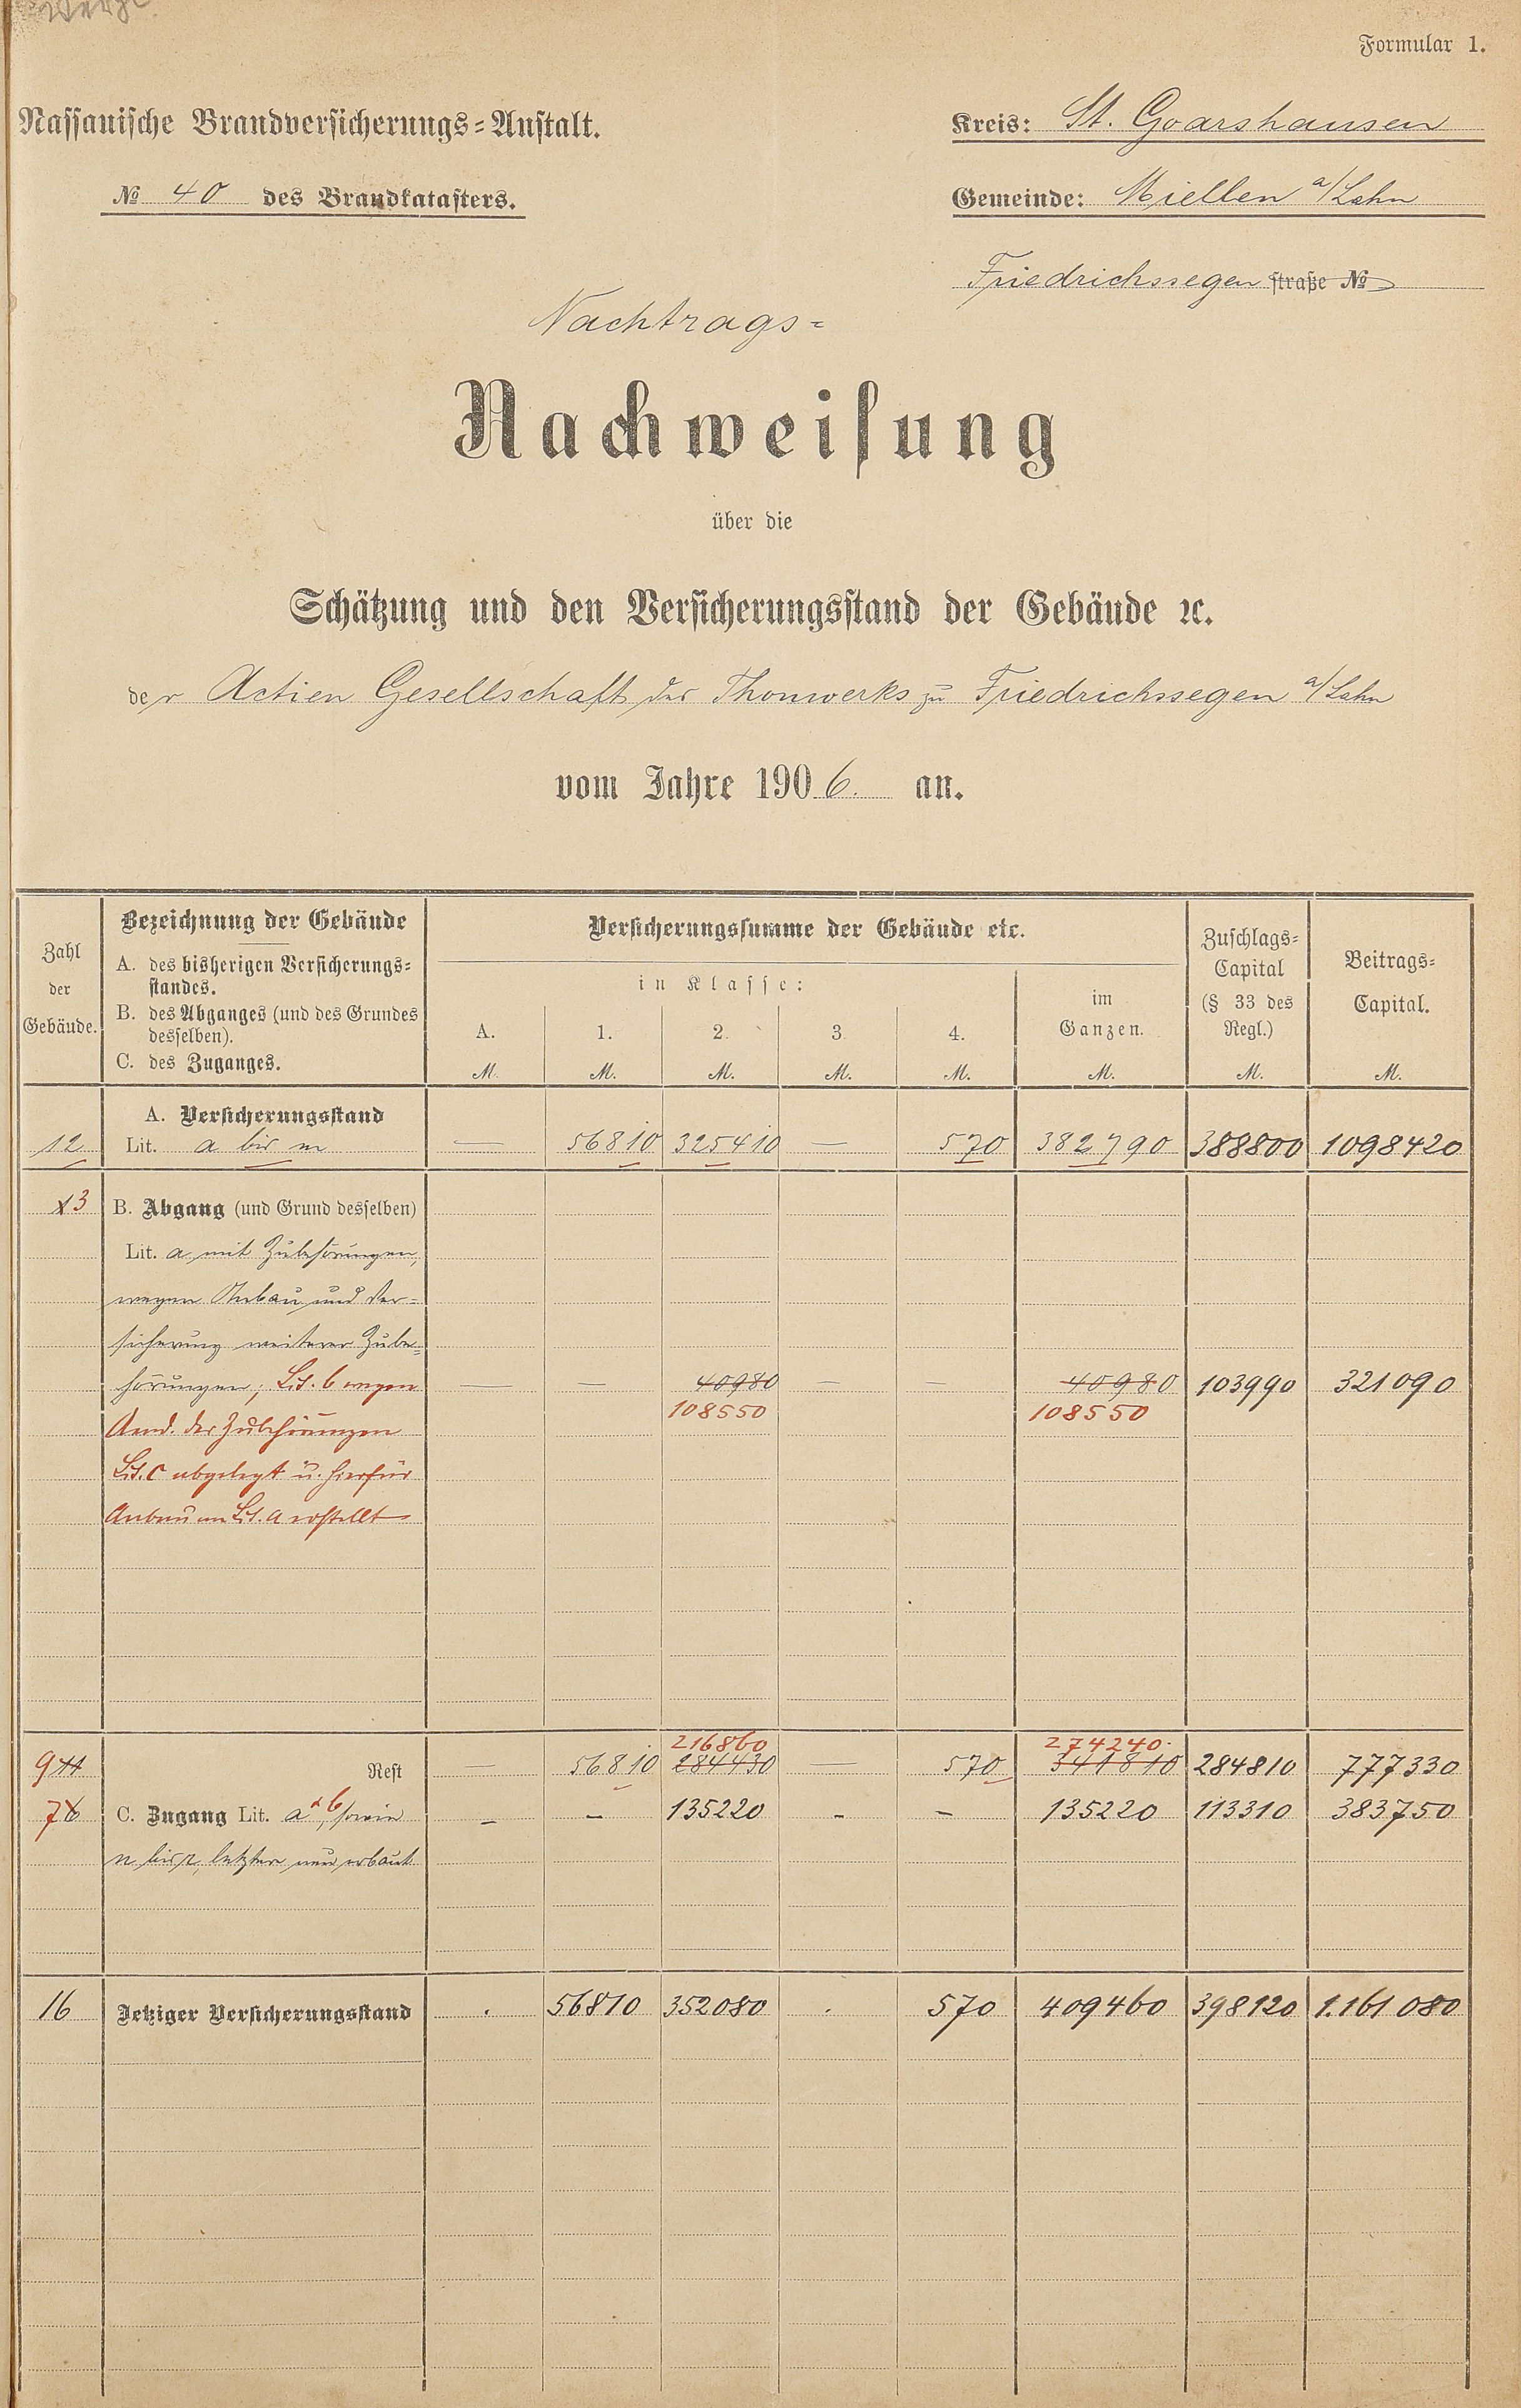 Formular 1.
Nassauische Brandversicherungs-Anstalt.
Kreis: St. Goarshausen
№ 40 des Brandkatasters.
Gemeinde: Miellen a/Lahn
Friedrichssegen straße №
Nachtrags-
Nachweisung
über die
Schätzung und den Versicherungsstand der Gebäude ꝛc.
der Actien Gesellschaft des Thonwerks zu Friedrichssegen a/Lahn
vom Jahre 1906. an.
Zahl der Gebäude.
Bezeichnung der Gebäude
A. des bisherigen Versicherungs-
standes.
B. des Abganges (und des Grundes
desselben).
C. des Zuganges.
Versicherungssumme der Gebäude etc.
in Klasse:
A. 1. 2. 3. 4.
im Ganzen.
Zuschlags-
Capital
(§ 33 des
Regl.)
Beitrags-
Capital.
M. M. M. M. M. M. M. M.
A. Versicherungsstand
12 Lit. a bis m — 56810 325410 — 570 382790 388800 1098420
3 B. Abgang (und Grund desselben)
Lit. a mit Zubehörungen,
wegen Anbau und Ver-
sicherung weiterer Zube-
hörungen; Lit. b wegen — — 40980 — — 40980 103990 321090
Aend. der Zubehörungen 108550 108550
Lit. c abgelegt u. hierfür
Anbau an Lit. a erstellt
216860 274240.
9 11 Rest — 56810 284430 — 570 341810 284810 777330
7 C. Zugang Lit. a, b sowie – – 135220 – – 135220 113310 383750
n bis r, letztere neu erbaut
16 Jetziger Versicherungsstand . 56810 352080 . 570 409460 398120 1.161080